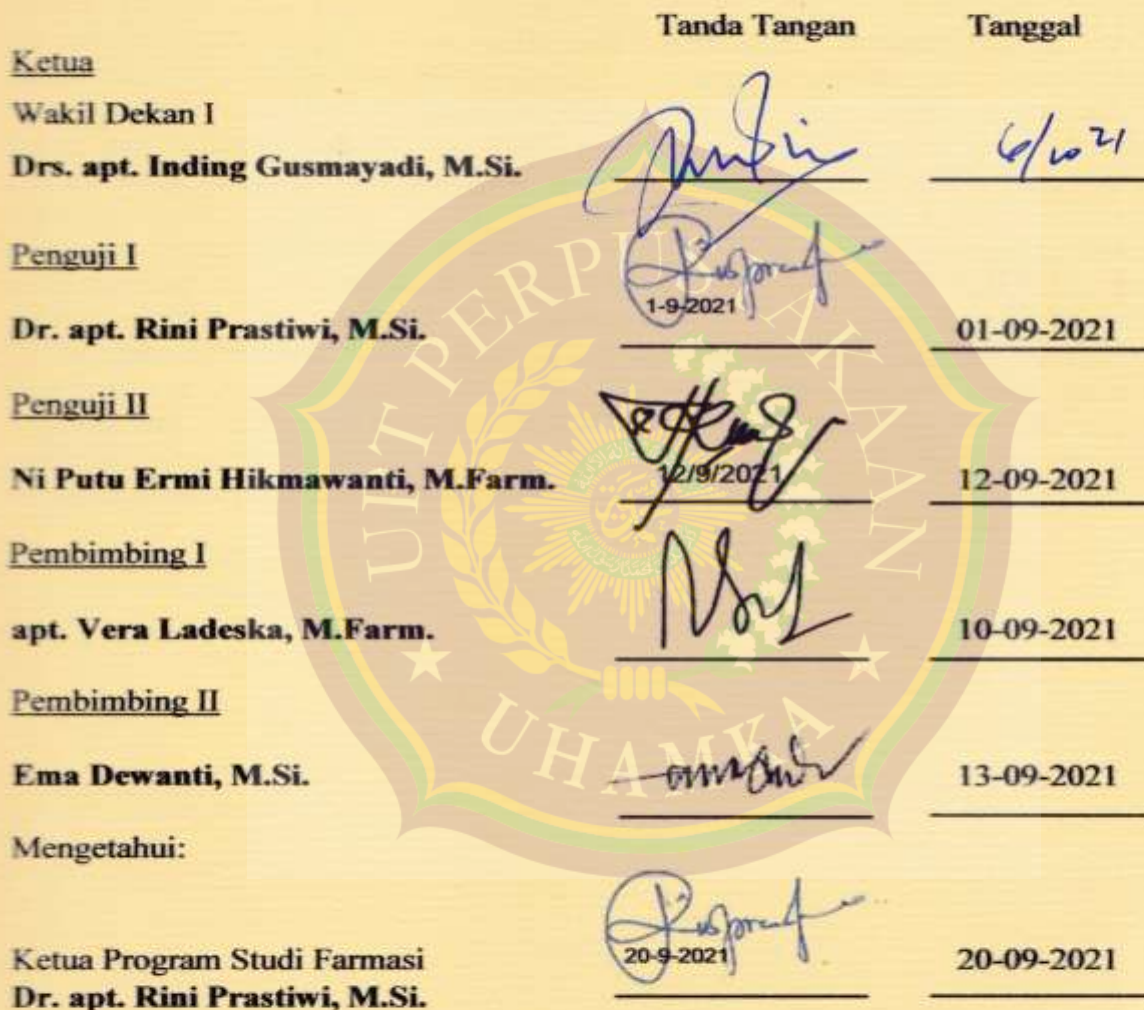 Tanda Tangan Tanggal
Ketua
Wakil Dekan I
Drs. apt. Inding Gusmayadi, M.Si.
6/10 21
Penguji I
1-9-2021
Dr. apt. Rini Prastiwi, M.Si. 01-09-2021
Penguji II
12/9/2021
Ni Putu Ermi Hikmawanti, M.Farm. 12-09-2021
Pembimbing I
apt. Vera Ladeska, M.Farm. 10-09-2021
Pembimbing II
Ema Dewanti, M.Si. 13-09-2021
Mengetahui:
20-9-2021
Ketua Program Studi Farmasi 20-09-2021
Dr. apt. Rini Prastiwi, M.Si.
UPT PERPUSTAKAAN
UHAMKA